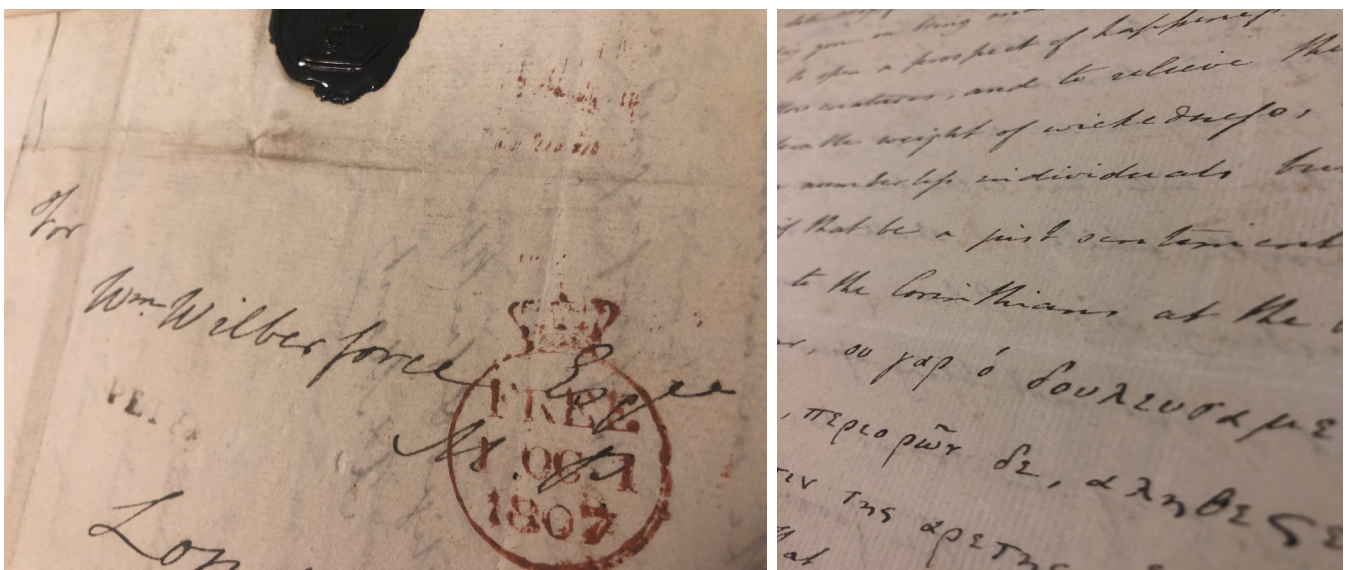 For
Wm Wilberforce Esqre
M.P.
PETT
Lon
FREE
1 OC 1
1807
you in long
to open a prospect of happiness
and to relieve the
the weight of wickedness,
numberless individuals bu
if that be a just sentiment
to the Corinthians at the
ου γαρ ὁ δουλευσαμε
, περιορῶν δε, αληθεςε
της αρετης
at